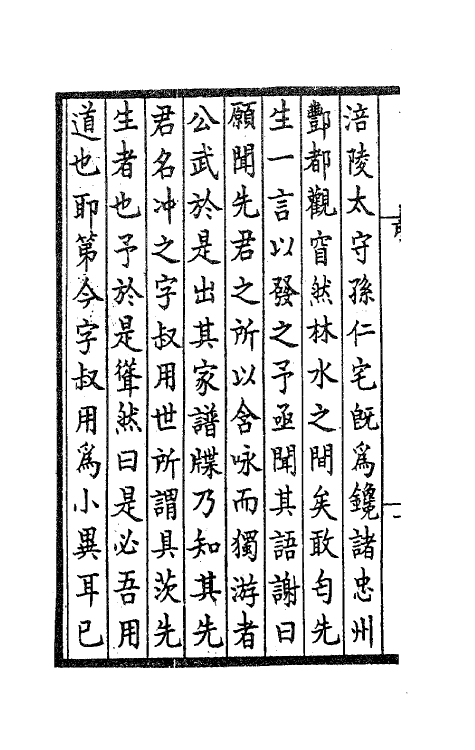 涪陵太守孫仁宅旣爲鑱諸忠州
酆都觀窅然林水之間矣敢匄先
生一言以發之予亟聞其語謝曰
願聞先君之所以含咏而獨游者
公武於是出其家譜牒乃知其先
君名冲之字叔用世所謂具茨先
生者也予於是聳然曰是必吾用
道也耶第今字叔用爲小異耳已